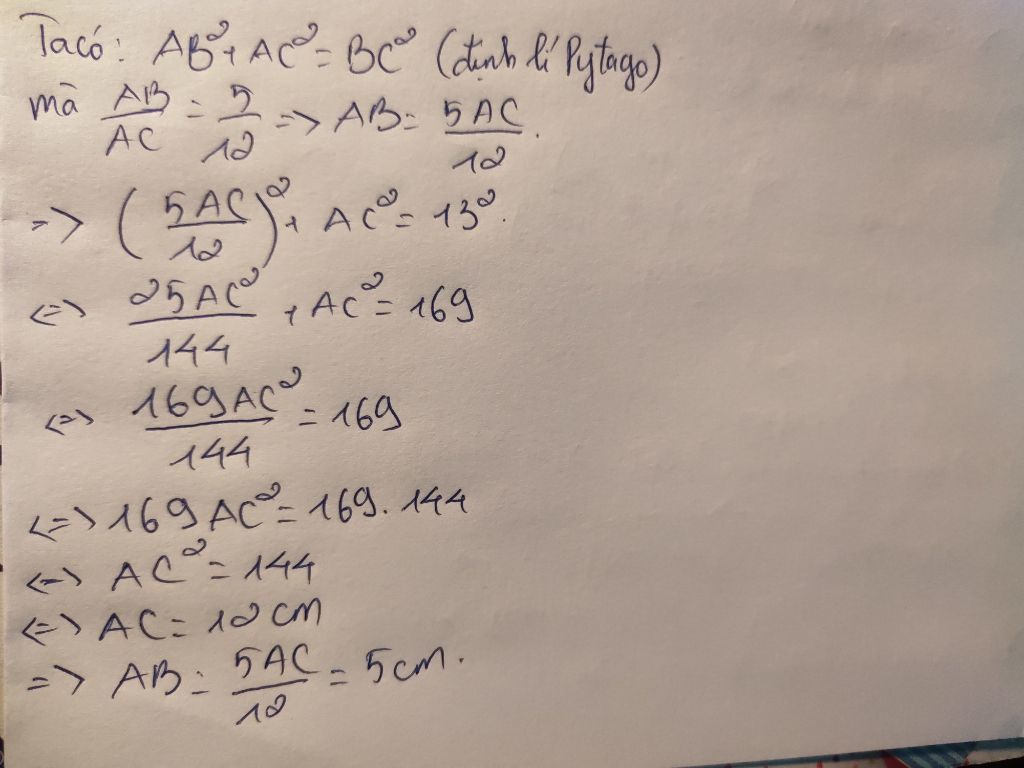 Ta có: AB² + AC² = BC² (định lí Pytago)
mà AB/AC = 5/12 => AB = 5AC/12.
=> (5AC/12)² + AC² = 13².
<=> 25AC²/144 + AC² = 169
<=> 169AC²/144 = 169
<=> 169AC² = 169.144
<=> AC² = 144
<=> AC = 12 cm
=> AB = 5AC/12 = 5cm.